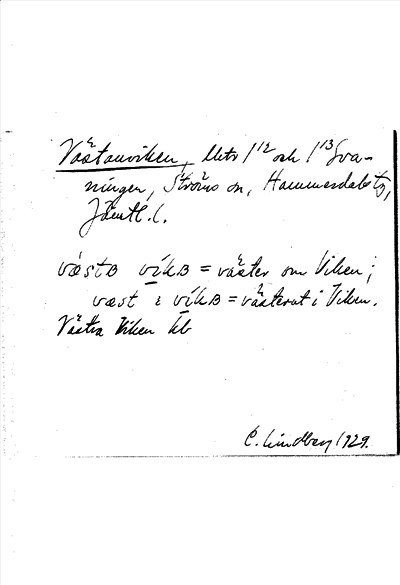 Västanviken, lktr 1¹² och 1¹³ Sva-
ningen, Ströms sn, Hammerdals tg,
Jämtl. l.
väst B vík B = väster om Viken;
væst i vík B = västerut i Viken.
Västra Viken kb
C. Lindberg 1929.